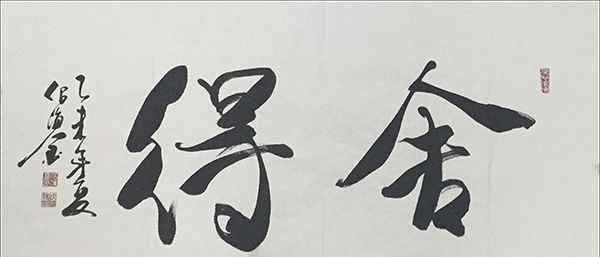 舍得
乙未年夏